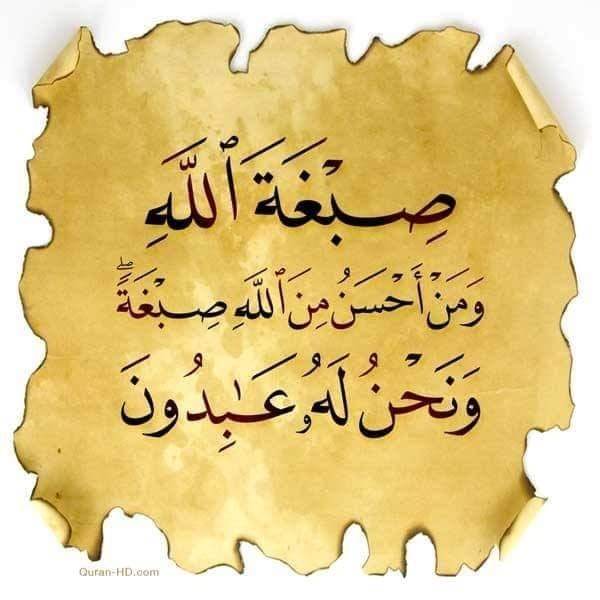 صِبْغَةَ ٱللَّهِ
وَمَنْ أَحْسَنُ مِنَ ٱللَّهِ صِبْغَةًۖ
وَنَحْنُ لَهُۥ عَٰبِدُونَ
Quran-HD.com